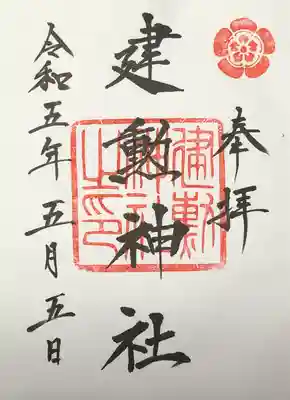 奉拝
建勲神社
建勲神社之印
令和五年五月五日